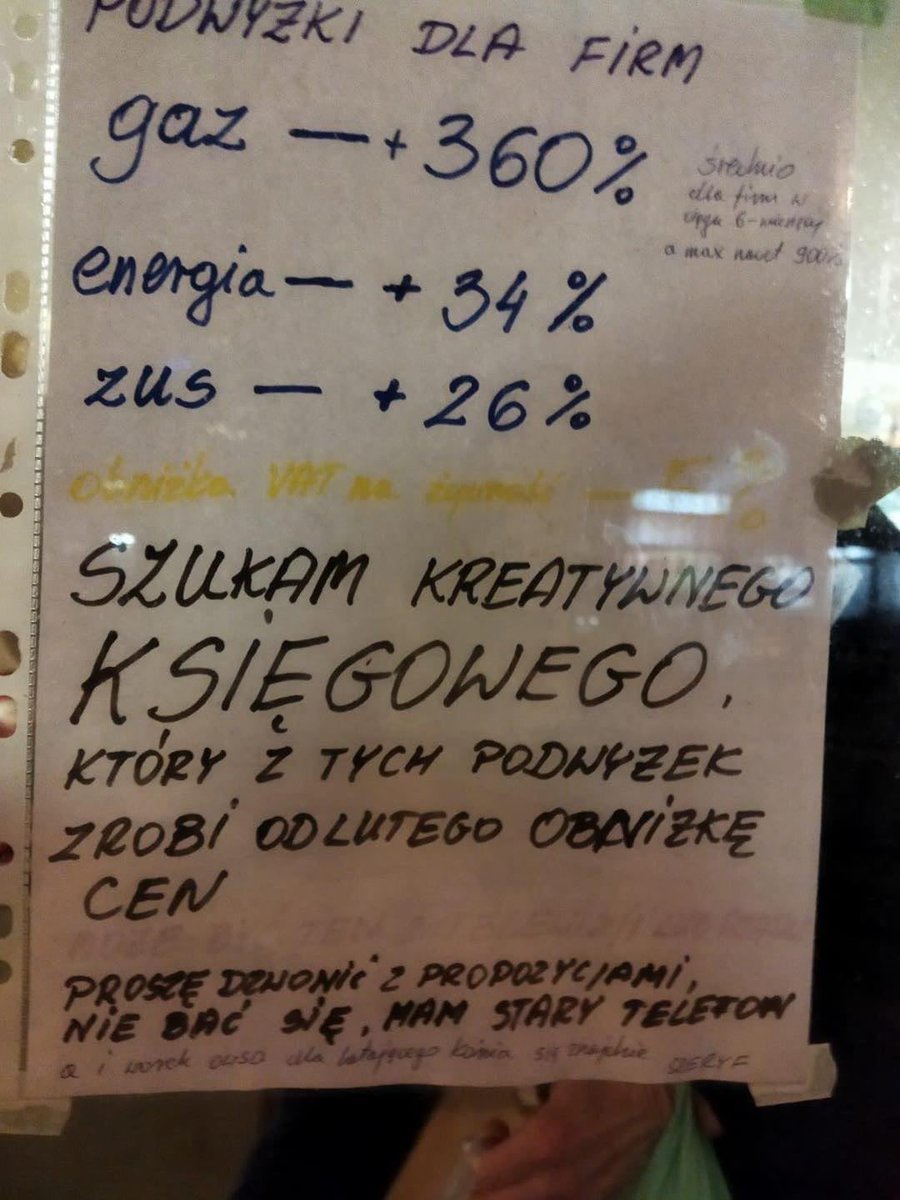 PODWYŻKI DLA FIRM
gaz — + 360%
średnio
dla firm w
ciągu 6-miesięcy
a max nawet 900%
energia — + 34%
zus — + 26%
obniżka VAT na żywność — 5%
SZUKAM KREATYWNEGO
KSIĘGOWEGO,
KTÓRY Z TYCH PODWYZEK
ZROBI OD LUTEGO OBNIZKĘ
CEN
MOŻE BYĆ TEN Z TELEWIZJI
PROSZĘ DZWONIĆ Z PROPOZYCJAMI,
NIE BAĆ SIĘ, MAM STARY TELEFON
a i worek owsa dla latającego konia się znajdzie SZERYF